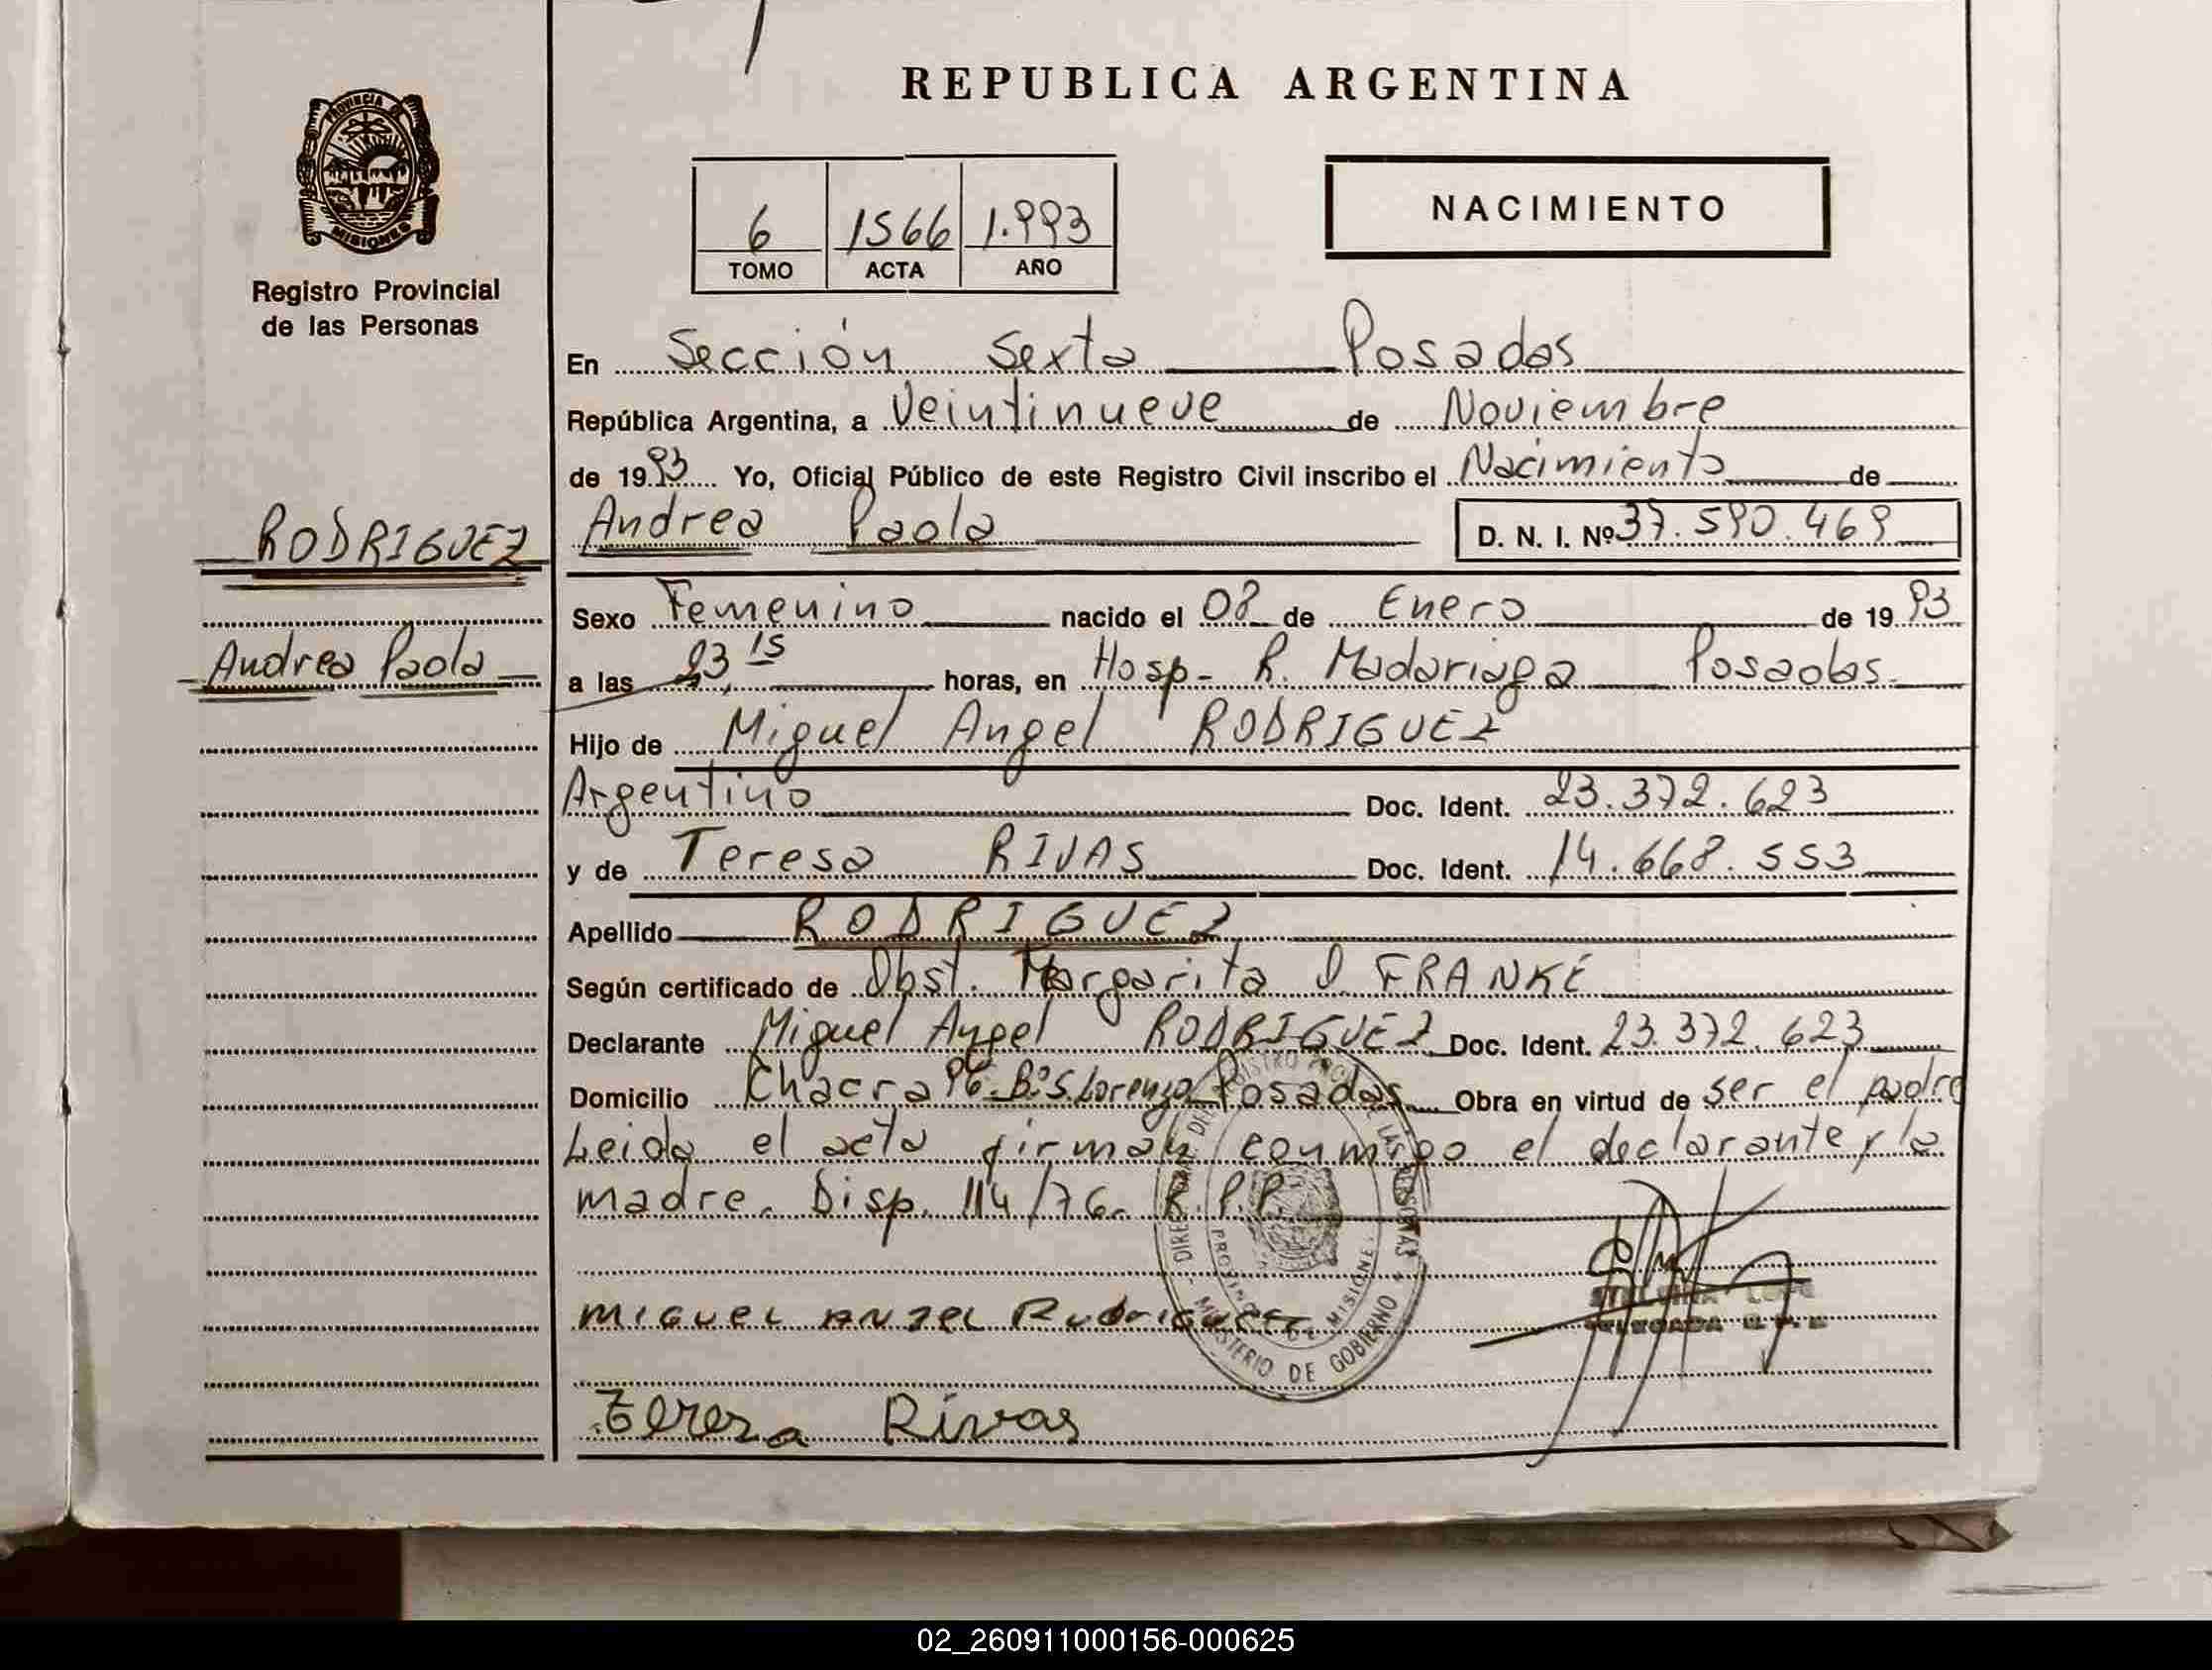 REPUBLICA ARGENTINA
PROVINCIA DE
MISIONES
Registro Provincial
de las Personas
6 1566 1.993
TOMO ACTA AÑO
NACIMIENTO
En Sección Sexta Posadas
República Argentina, a Veintinueve de Noviembre
de 1993 Yo, Oficial Público de este Registro Civil inscribo el Nacimiento de
RODRIGUEZ
Andrea Paola D. N. I. Nº 37.590.469
Sexo Femenino nacido el 08 de Enero de 1993
Andrea Paola
a las 23,15 horas, en Hosp- R. Madariaga Posadas.
Hijo de Miguel Angel RODRIGUEZ
Argentino Doc. Ident. 23.372.623
y de Teresa RIVAS Doc. Ident. 14.668.553
Apellido RODRIGUEZ
Según certificado de Obst. Margarita D. FRANKE
Declarante Miguel Angel RODRIGUEZ Doc. Ident. 23.372.623
Domicilio Chacra 96. Bº S. Lorenzo Posadas Obra en virtud de ser el padre
Leida el acta firman conmigo el declarante y la
madre. Disp. 114/76. R.P.P.
MINISTERIO DE GOBIERNO
PROVINCIA DE MISIONES
MIGUEL ANJEL Rudriguez
DELEGADA R.P.P.
Tereza Rivas
02_260911000156-000625